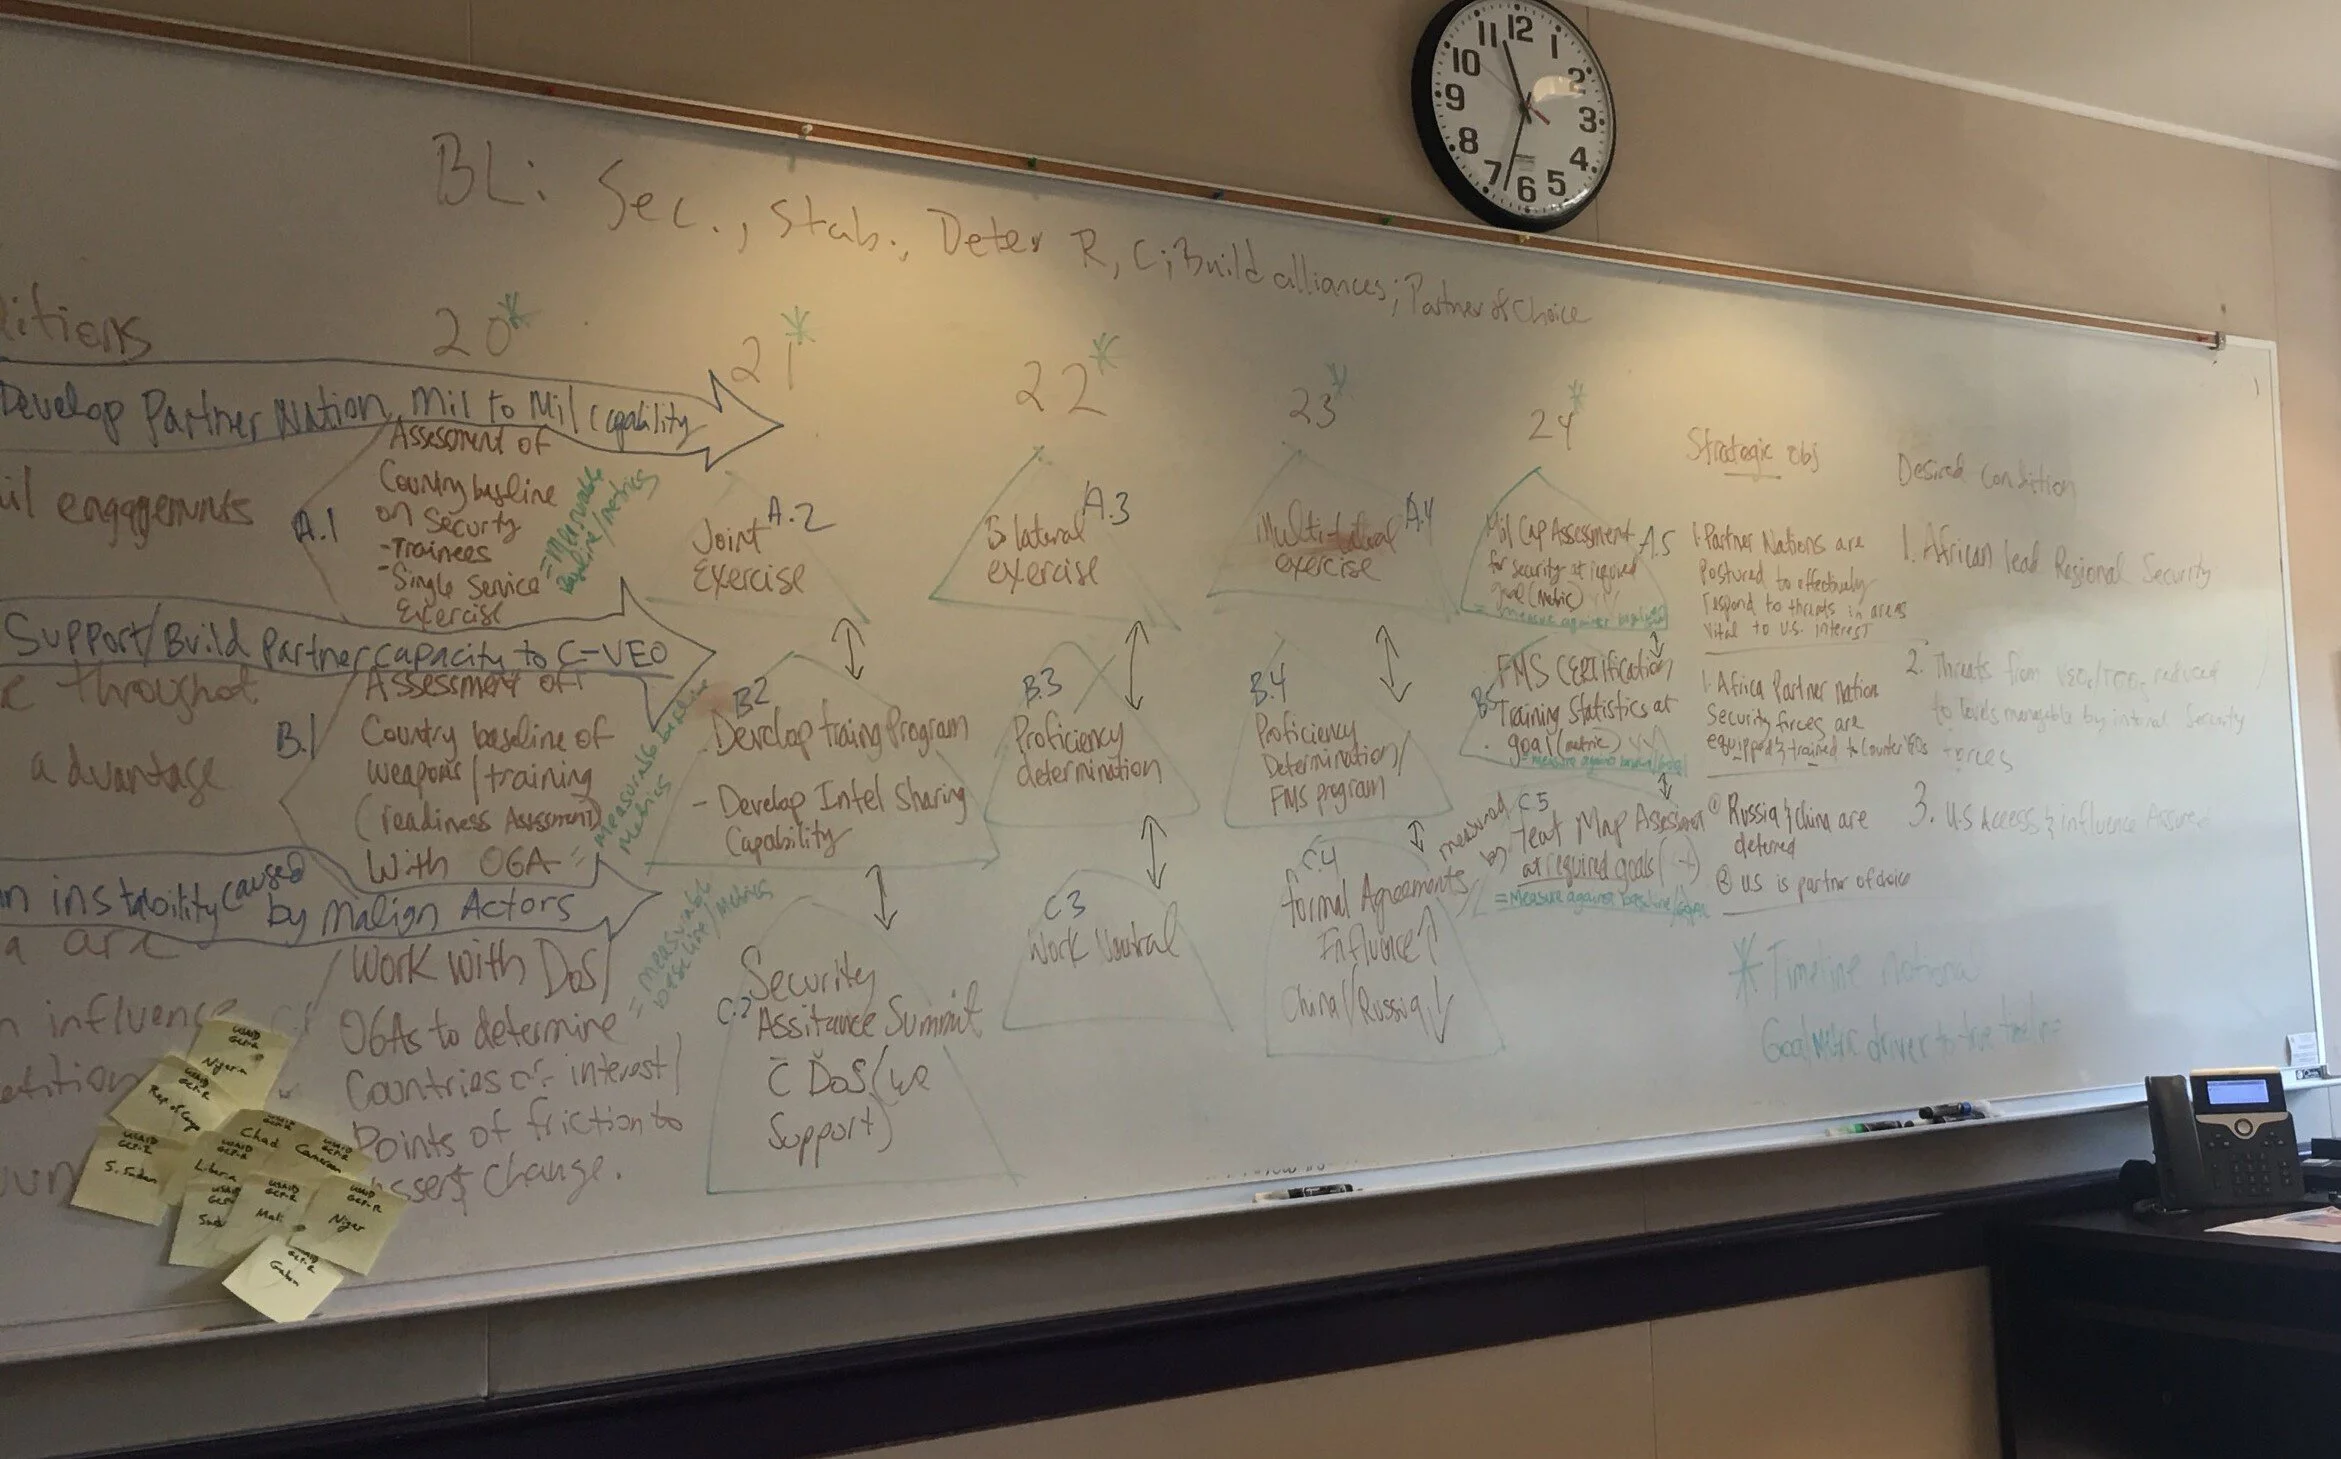 BL: Sec., Stab., Deter R, C; Build alliances; Partner of Choice
litions
20*
21*
22*
23*
24*
Strategic Obj
Desired Condition
Develop Partner Nation Mil to Mil Capability
il engagements
A.1
Assessment of
Country baseline
on Security
-Trainees
-Single Service
Exercise
= Measurable
baseline/metrics
A.2
Joint
Exercise
A.3
Bilateral
exercise
A.4
Multi-lateral
exercise
A.5
Mil Cap Assessment
for security at required
goal (metric)
= measure against baseline
1. Partner Nations are
Postured to effectively
respond to threats in areas
vital to U.S. interest
1. African lead Regional Security
Support/Build Partner capacity to C-VEO
e throughout
a advantage
B.1
Assessment of
Country baseline of
weapons/training
(readiness Assessment)
With OGA
= Measurable baseline
Metrics
B2
- Develop traing Program
- Develop Intel Sharing
Capability
B.3
Proficiency
determination
B.4
Proficiency
Determination/
FMS program
B5
FMS CERtification
Training Statistics at
goal (metric)
= measure against
1. Africa Partner Nation
Security forces are
equipped & trained to counter VEOs
2. Threats from reduced
to levels manageable by internal Security
forces
n instability caused
by Malign Actors
a are
n influence
etition
Work with DoS/
OGAs to determine
Countries of interest/
Points of friction to
assert change.
= measurable
baseline/metrics
C.2
Security
Assitance Summit
c̄ DoS (we
Support)
C3
Work Neutral
C.4
formal Agreements
Influence ↑
China/Russia ↓
measured
by
C5
Heat Map Assessment
at required goals (-+)
= Measure against baseline/
① Russia & China are
deterred
② US is partner of choice
3. U.S Access & influence Assured
* Timeline notional
Goal Metric driver to true timeline
USAID
Nigeria
USAID
Rep of Congo
USAID
S. Sudan
Chad
USAID
Cameroon
USAID
Liberia
USAID
USAID
Mali
USAID
Niger
USAID
Gabon
11 12 1
10 2
9 3
8 4
7 6 5